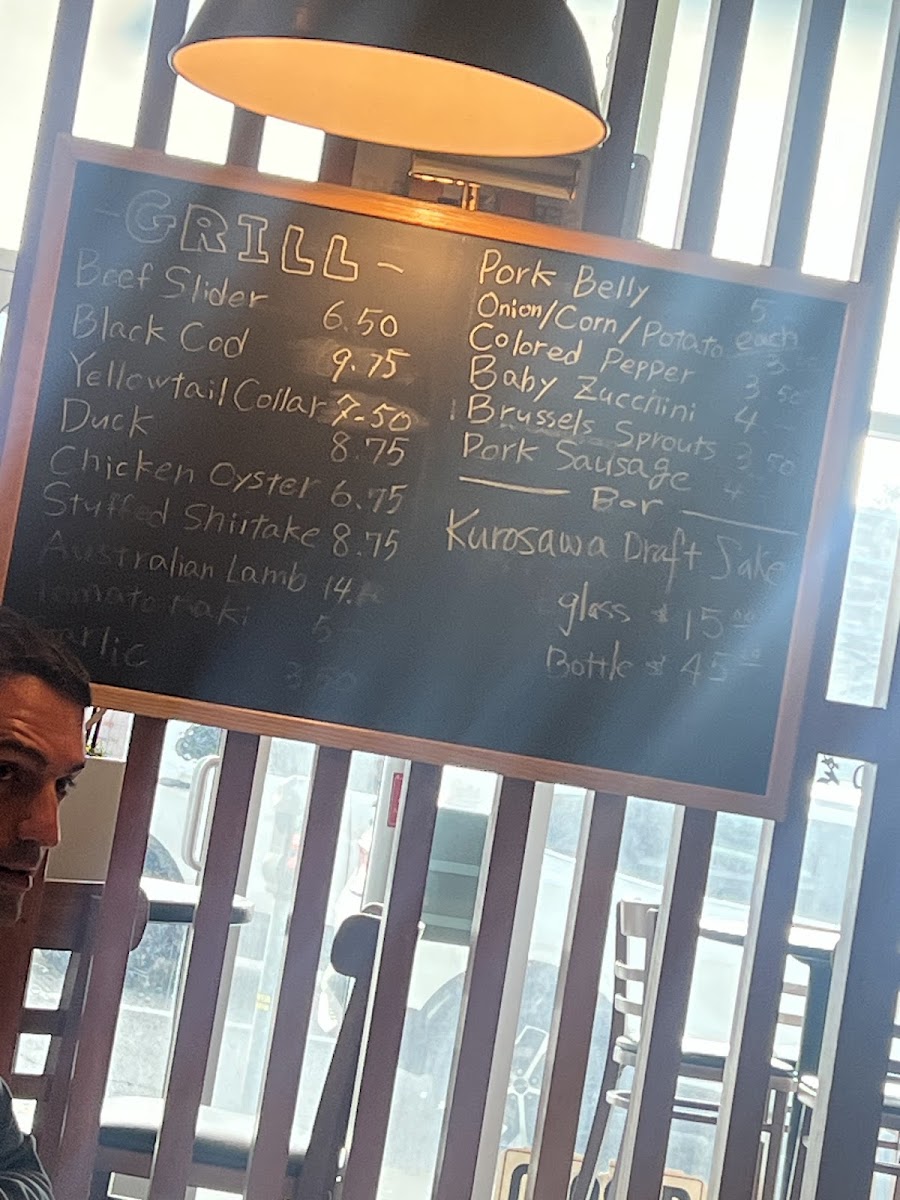 - GRILL -
Beef Slider 6.50
Black Cod 9.75
Yellowtail Collar 7.50
Duck 8.75
Chicken Oyster 6.75
Stuffed Shiitake 8.75
Australian Lamb 14.
Tomato 5
Garlic 3.50
Pork Belly 5
Onion/Corn/Potato each 3
Colored Pepper 3.50
Baby Zucchini 4
Brussels Sprouts 3.50
Pork Sausage 4
Bar
Kurosawa Draft Sake
glass $15.00
Bottle $45.00